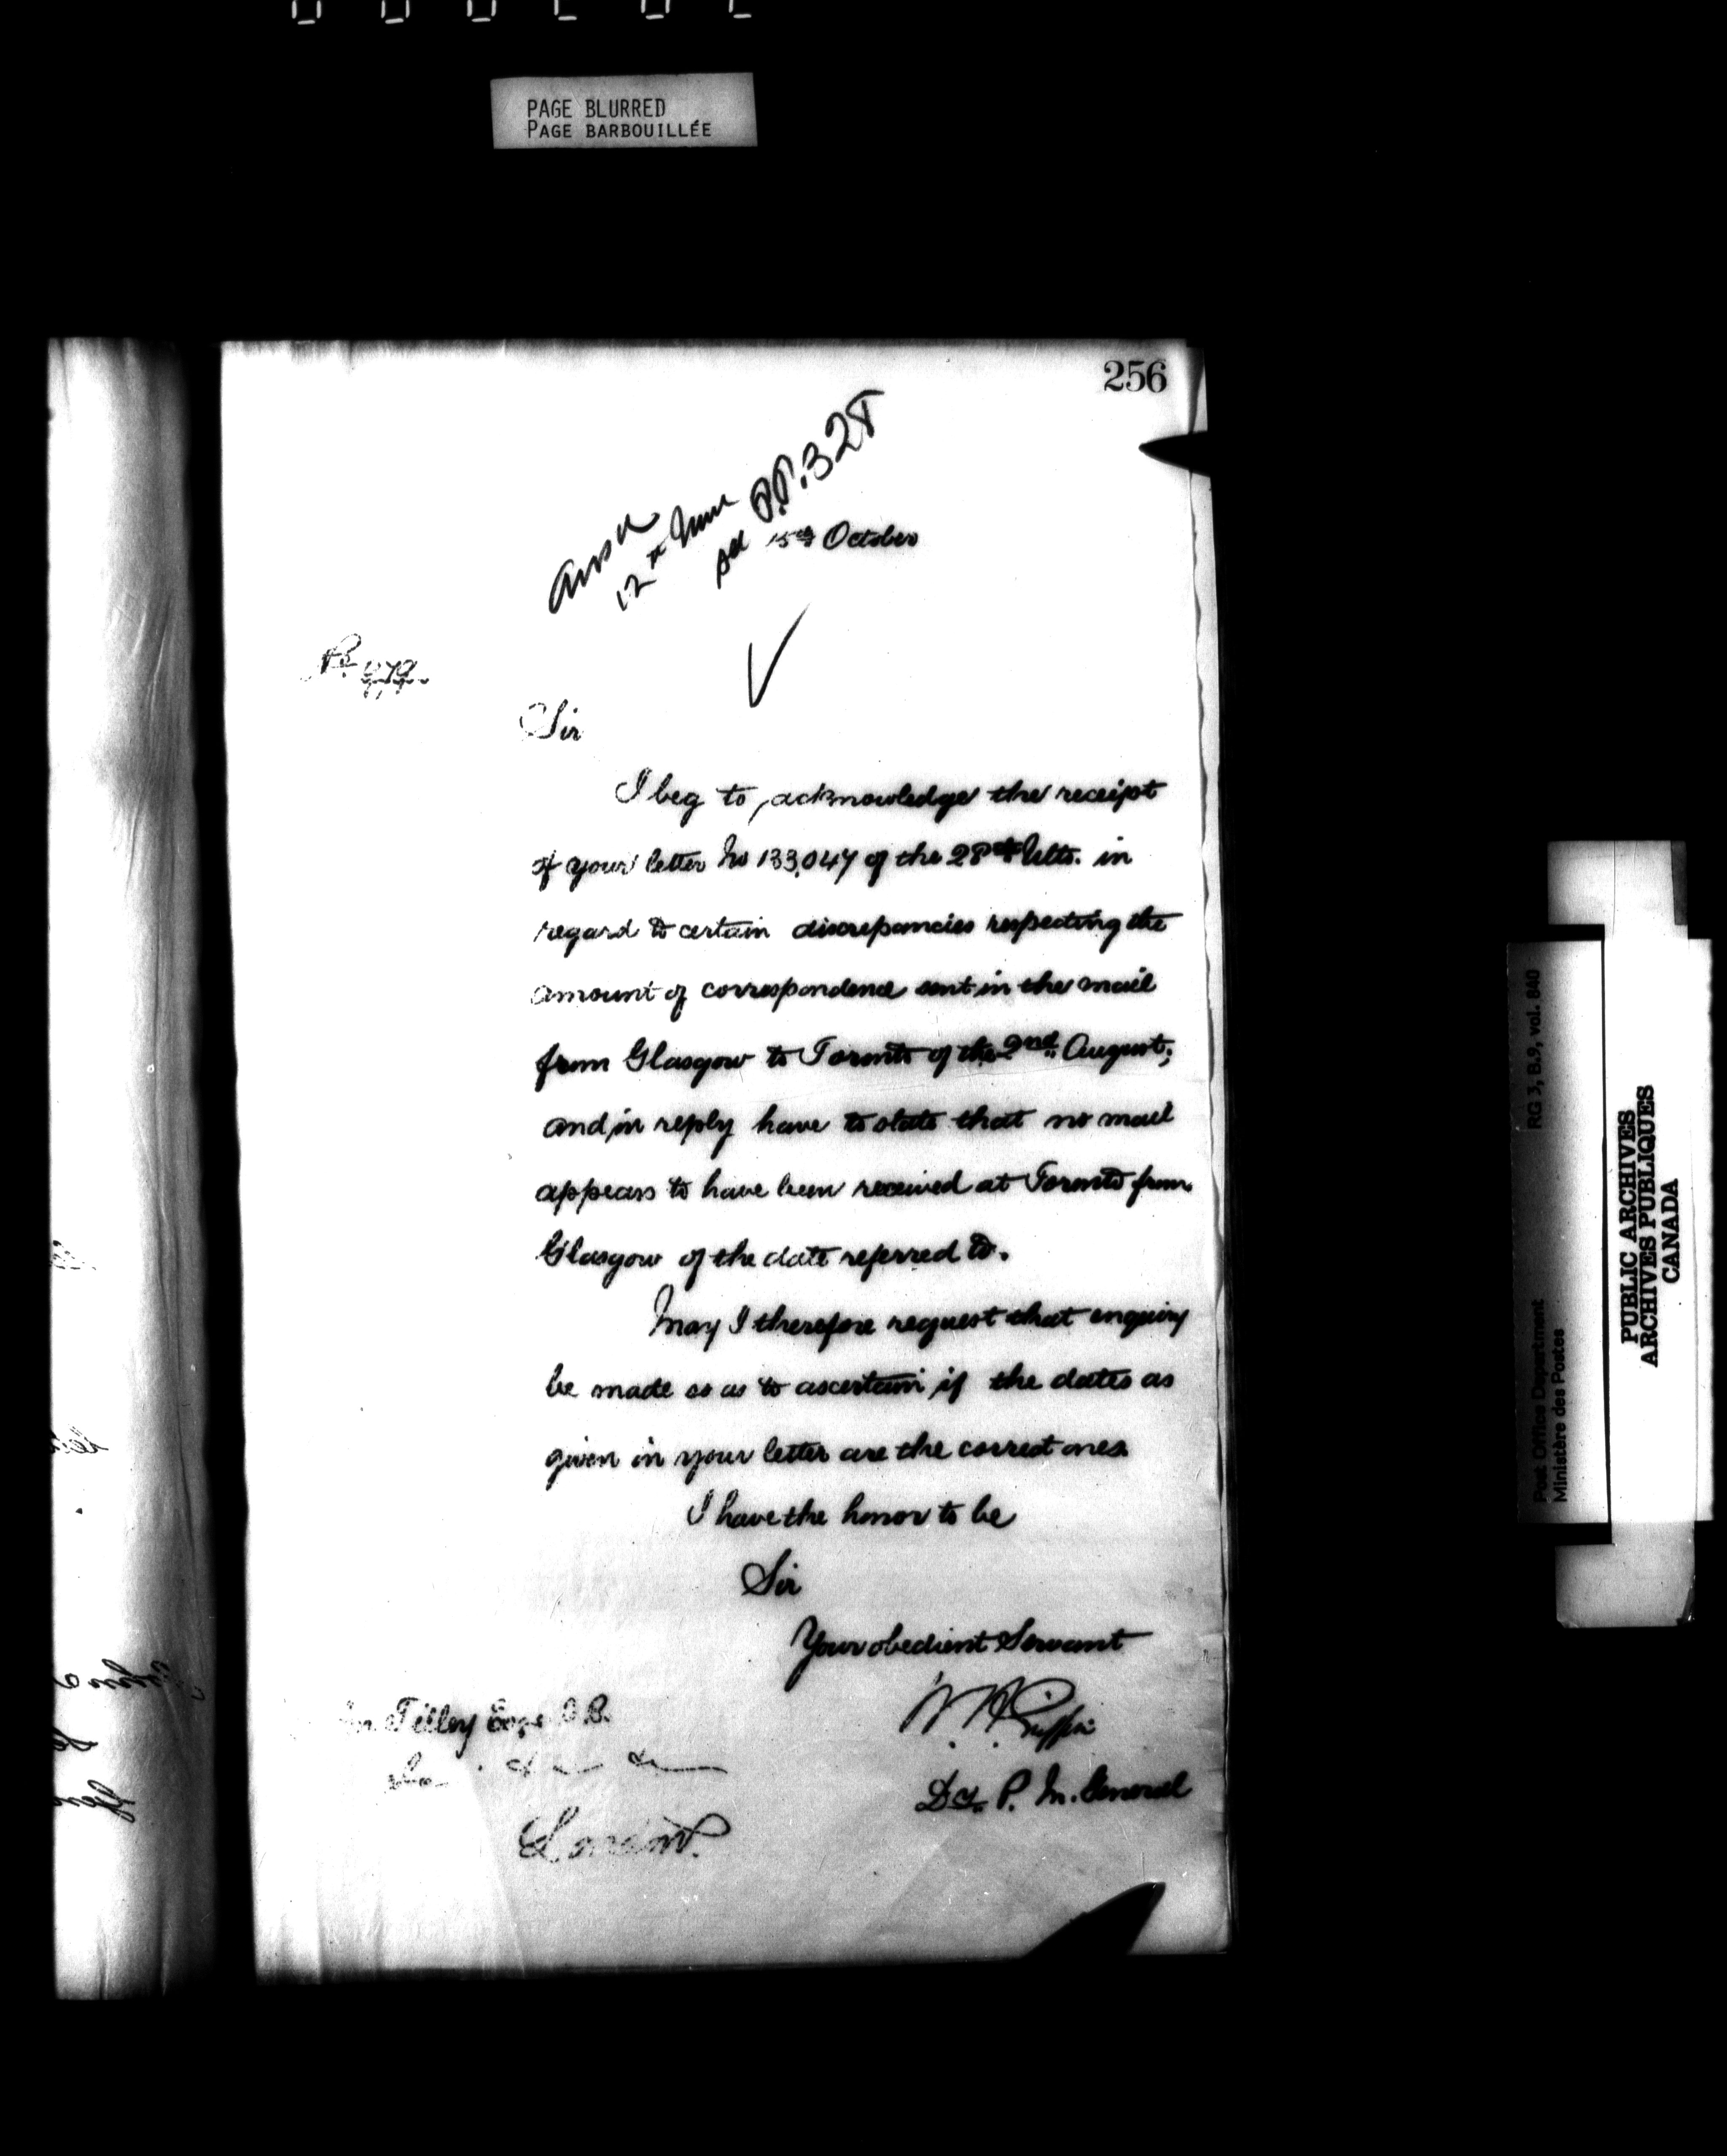 PAGE BLURRED
PAGE BARBOUILLÉE
256
Ansd
12th June
P.P. 328
15th October
No
Sir
I beg to acknowledge the receipt
of your letter No 133,047 of the 28th Ulto. in
regard to certain discrepancies respecting the
amount of correspondence sent in the mail
from Glasgow to Toronto of the 2nd August;
and in reply have to state that no mail
appears to have been received at Toronto from
Glasgow of the date referred to.
May I therefore request that enquiry
be made so as to ascertain if the dates as
given in your letter are the correct ones.
I have the honor to be
Sir
Your obedient Servant
W H Griffin
Dy. P. M. General
Tilley Esqr C.B.
London.
RG 3, B.9, vol. 840
Post Office Department
Ministère des Postes
PUBLIC ARCHIVES
ARCHIVES PUBLIQUES
CANADA